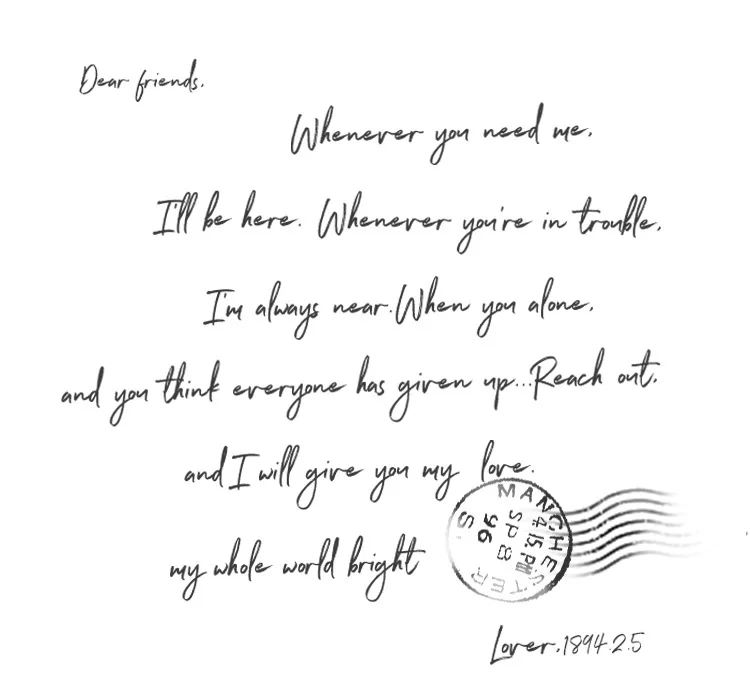 Dear friends.
Whenever you need me.
I'll be here. Whenever you're in trouble.
I'm always near. When you alone.
and you think everyone has given up... Reach out.
and I will give you my love.
MANCHESTER
4.15.PM
SP 8
96
S.
my whole world bright
Lover.1894.2.5